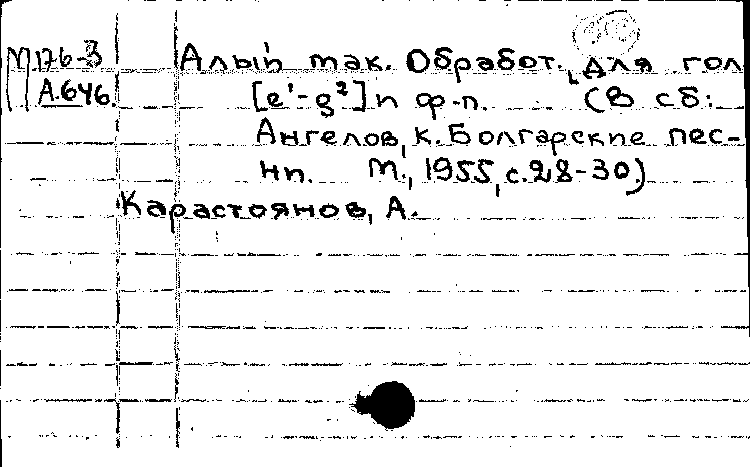 М 176-3 Алый мак. Обработ. для гол
А.646. [e¹-g²] и ф-п. (В сб:
Ангелов, К. Болгарские пес-
ни. М., 1955, с.28-30.)
Карастоянов, А.